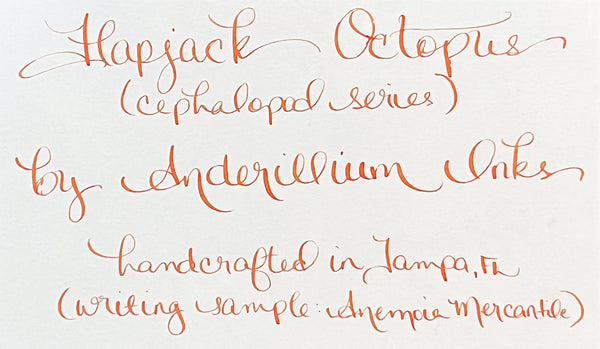 Flapjack Octopus
(cephalopod series)
by Anderillium Inks
handcrafted in Tampa, FL
(writing sample: Anemoia Mercantile)